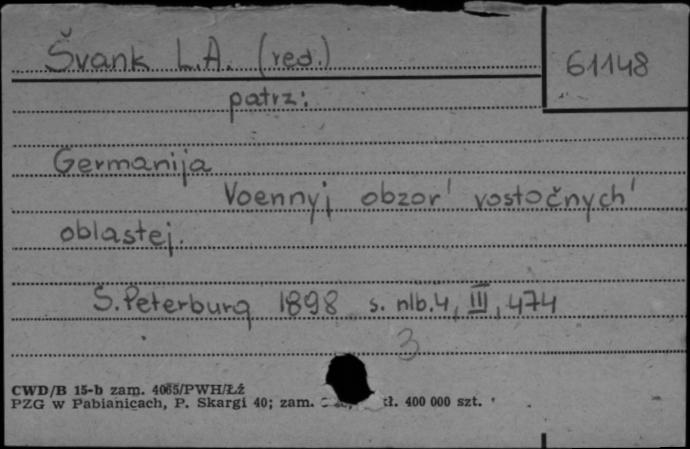 Švank L.A. (red.)
61148
patrz:
Germanija
Voennyj obzor' vostočnych'
oblastej.
S. Peterburg 1898 s. nlb. 4, III, 474
3
CWD/B 15-b zam. 4065/PWH/Łź
PZG w Pabianicach, P. Skargi 40; zam. ł. 400 000 szt.